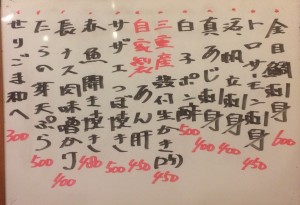 金目鯛刺身 600
トロサーモン刺身
活帆立刺身 400
真あじ刺身 400
白子ポン酢 500
三重産殻付生かき(2ヶ) 450
自家製あん肝
サザエつぼ焼き 500
赤魚開き焼き 480
長ナス肉味噌かけ 400
たらの芽天ぷら 500
せりごま和へ 300